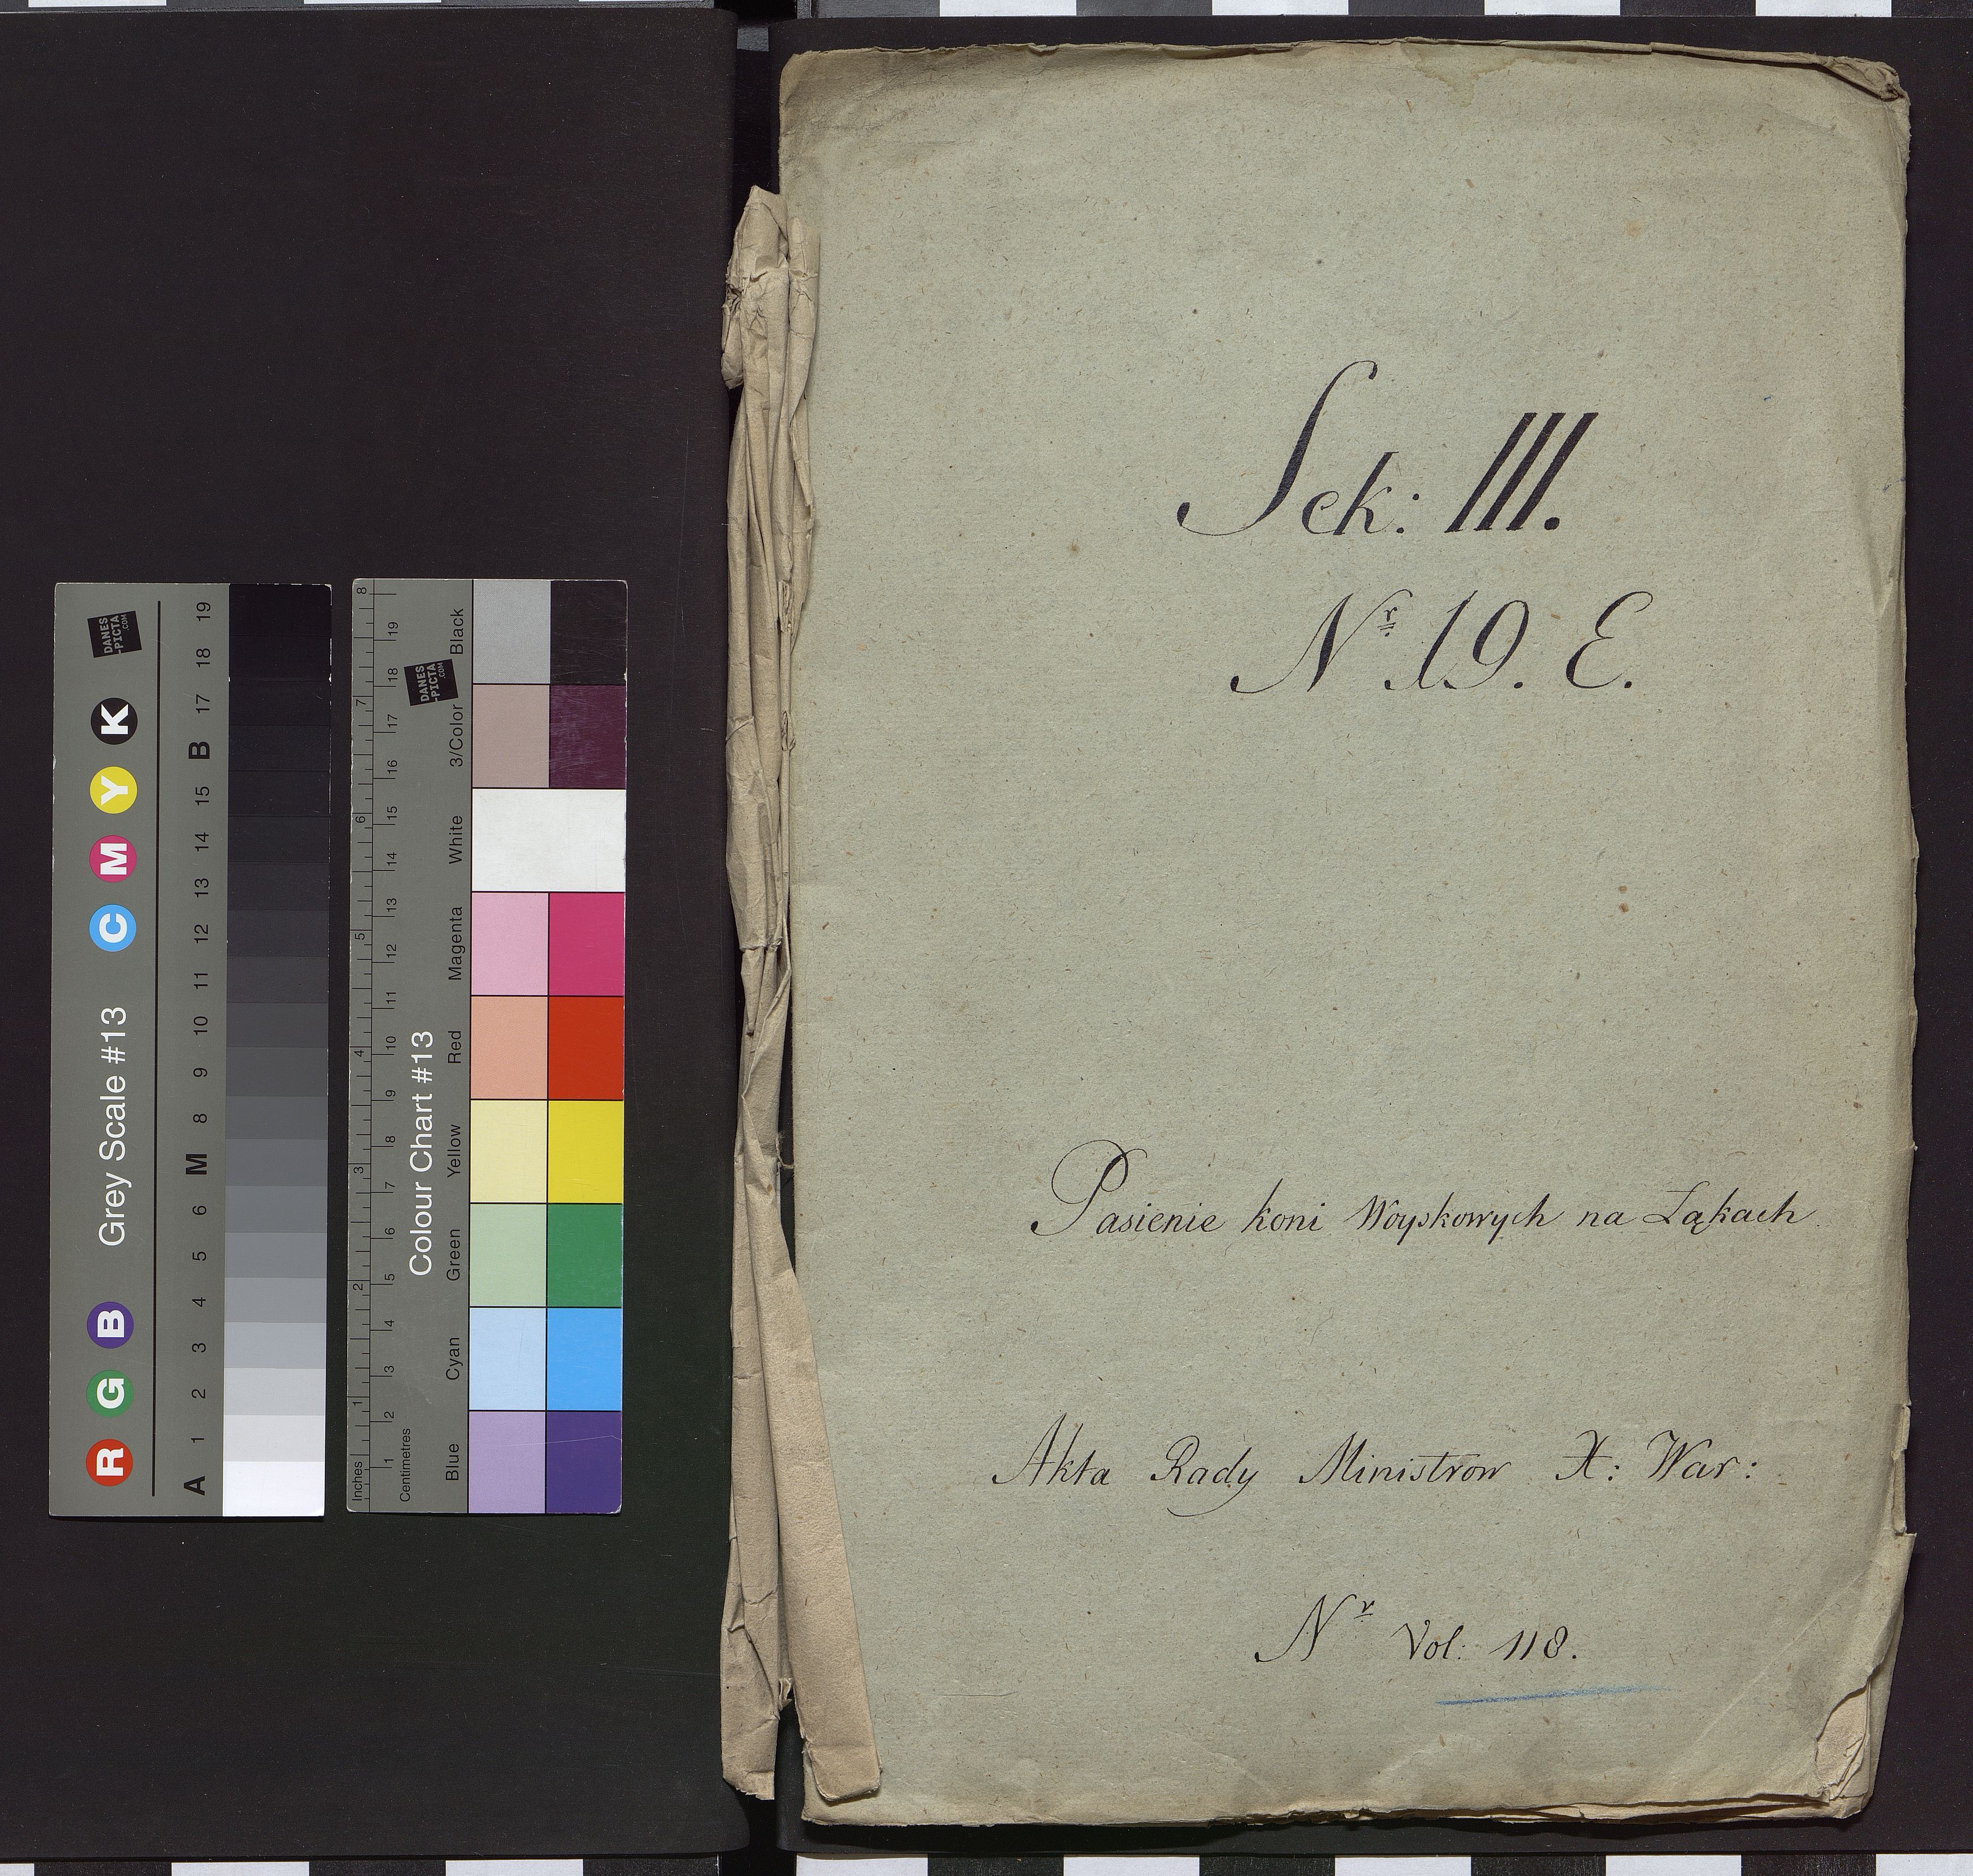 Sek: III.
Nr 19. E.
Pasienie koni Woyskowych na Łąkach
Akta Rady Ministrow X: War:
Nr Vol: 118.
Grey Scale #13
R G B C M Y K
A 1 2 3 4 5 6 M 8 9 10 11 12 13 14 15 B 17 18 19
DANES
-PICTA
.COM
Colour Chart #13
Inches 1 2 3 4 5 6 7 8
Centimetres 1 2 3 4 5 6 7 8 9 10 11 12 13 14 15 16 17 18 19
Blue Cyan Green Yellow Red Magenta White 3/Color Black
DANES
-PICTA
.COM